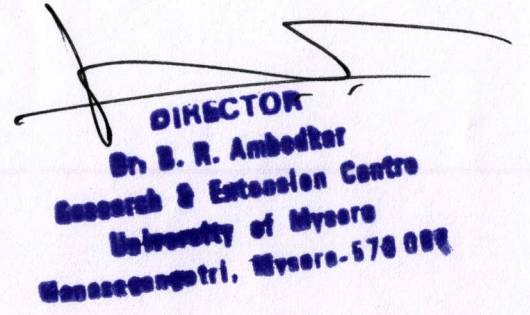 DIRECTOR
Dr. B. R. Ambedkar
Research & Extension Centre
University of Mysore
Manasagangotri, Mysore-570 006